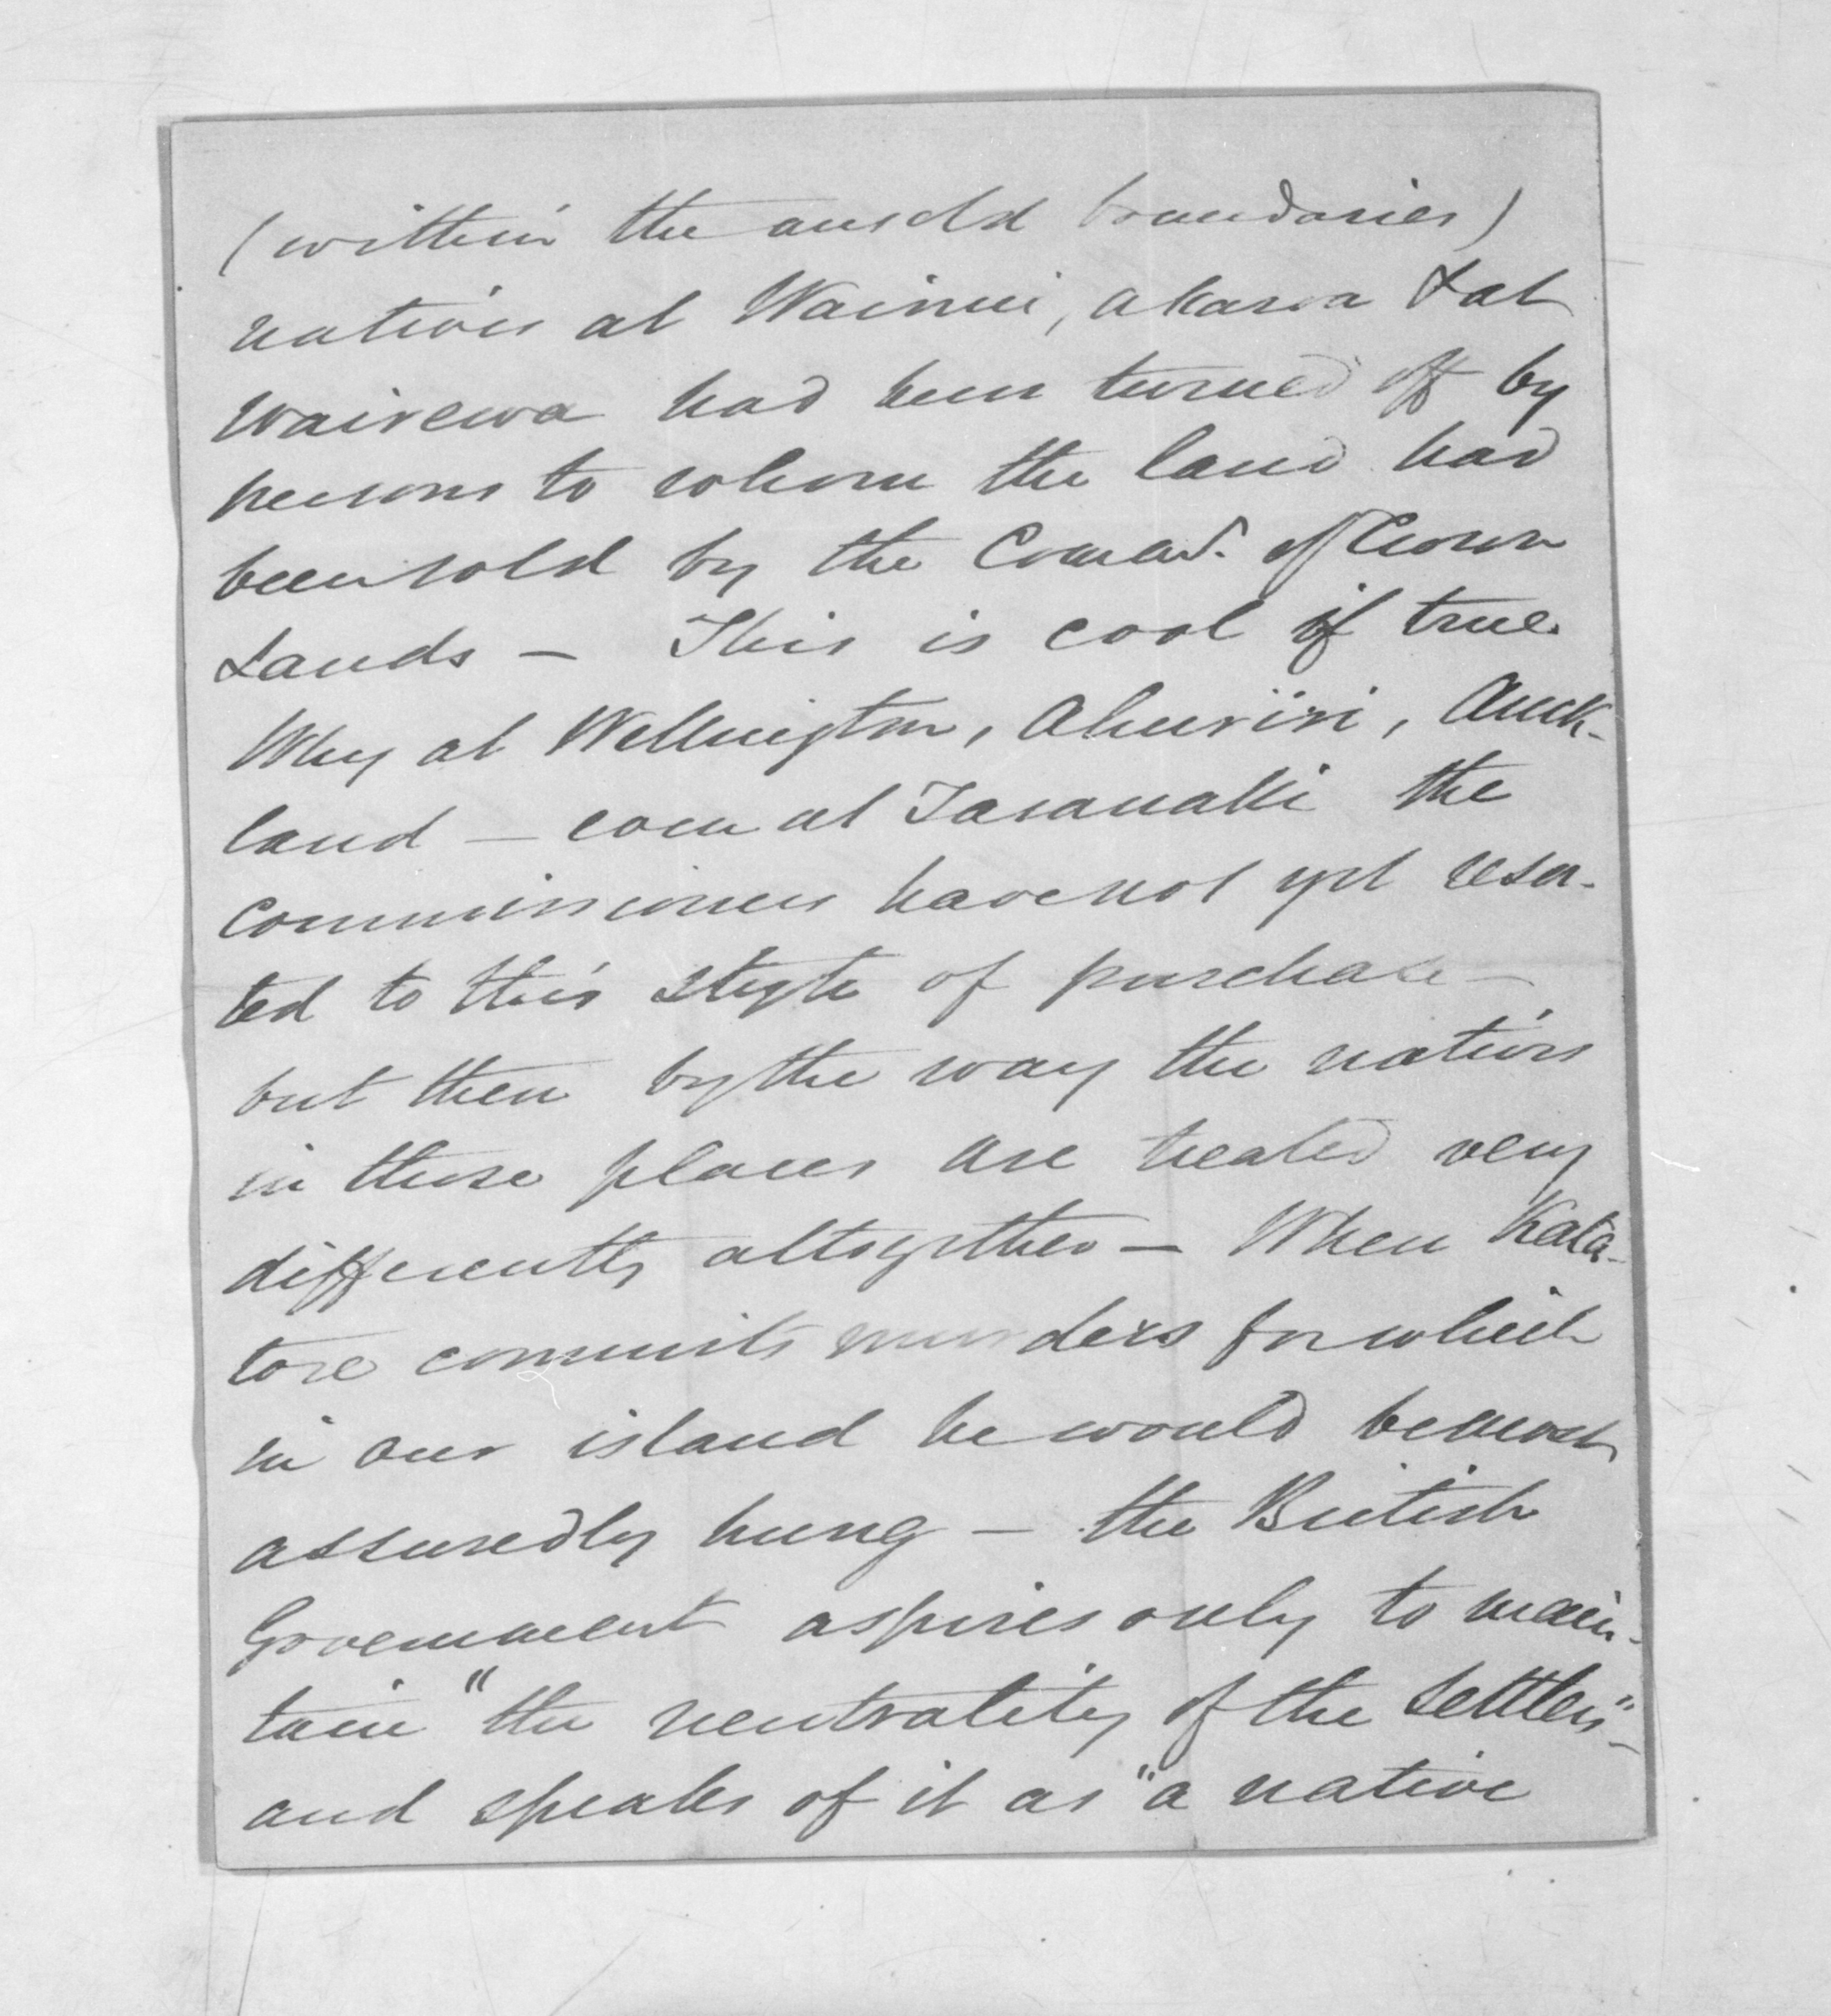 (within the unsold boundaries)
natives at Wainui, Akaroa & at
Wairewa had been turned off by
persons to whom the land had
been sold by the Comr. of Crown
Lands — This is cool if true.
Why at Wellington, Ahuriri, Auck-
land — even at Taranaki the
Commissioners have not yet resor-
ted to this style of purchase —
but then by the way the natives
in those places are treated very
differently altogether — When Kata-
tore commits murders for which
in our island he would be most
assuredly hung — the British
Government aspires only to main-
tain "the neutrality of the Settlers" —
and speaks of it as "a native